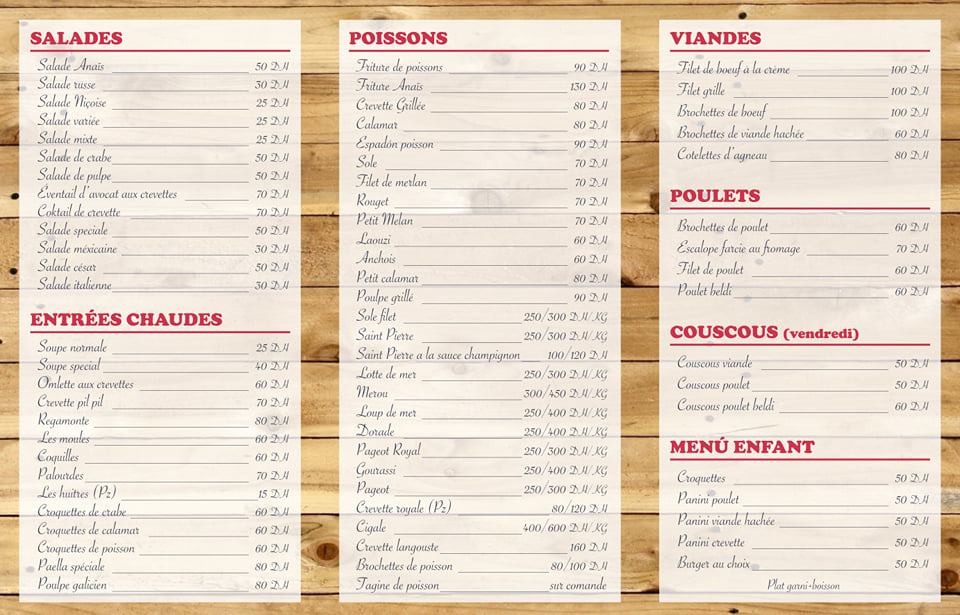 SALADES
Salade Anaïs 50 DH
Salade russe 30 DH
Salade Niçoise 25 DH
Salade variée 25 DH
Salade mixte 25 DH
Salade de crabe 50 DH
Salade de pulpe 50 DH
Éventail d'avocat aux crevettes 70 DH
Coktail de crevette 70 DH
Salade speciale 50 DH
Salade méxicaine 30 DH
Salade césar 50 DH
Salade italienne 30 DH
ENTRÉES CHAUDES
Soupe normale 25 DH
Soupe special 40 DH
Omlette aux crevettes 60 DH
Crevette pil pil 70 DH
Regamonte 80 DH
Les moules 60 DH
Coquilles 60 DH
Palourdes 70 DH
Les huîtres (Pz) 15 DH
Croquettes de crabe 60 DH
Croquettes de calamar 60 DH
Croquettes de poisson 60 DH
Paella spéciale 80 DH
Poulpe galicien 80 DH
POISSONS
Friture de poissons 90 DH
Friture Anaïs 130 DH
Crevette Grillée 80 DH
Calamar 80 DH
Espadón poisson 90 DH
Sole 70 DH
Filet de merlan 70 DH
Rouget 70 DH
Petit Melan 70 DH
Laouzi 60 DH
Anchois 60 DH
Petit calamar 80 DH
Poulpe grillé 90 DH
Sole filet 250/300 DH/KG
Saint Pierre 250/300 DH/KG
Saint Pierre a la sauce champignon 100/120 DH
Lotte de mer 250/300 DH/KG
Merou 300/450 DH/KG
Loup de mer 250/400 DH/KG
Dorade 250/400 DH/KG
Pageot Royal 250/300 DH/KG
Gourassi 250/400 DH/KG
Pageot 250/300 DH/KG
Crevette royale (Pz) 80/120 DH
Cigale 400/600 DH/KG
Crevette langouste 160 DH
Brochettes de poisson 80/100 DH
Tagine de poisson sur comande
VIANDES
Filet de boeuf à la crème 100 DH
Filet grille 100 DH
Brochettes de boeuf 100 DH
Brochettes de viande hachée 60 DH
Cotelettes d'agneau 80 DH
POULETS
Brochettes de poulet 60 DH
Escalope farcie au fromage 70 DH
Filet de poulet 60 DH
Poulet beldi 60 DH
COUSCOUS (vendredi)
Couscous viande 50 DH
Couscous poulet 50 DH
Couscous poulet beldi 60 DH
MENÚ ENFANT
Croquettes 50 DH
Panini poulet 50 DH
Panini viande hachée 50 DH
Panini crevette 50 DH
Burger au choix 50 DH
Plat garni+boisson